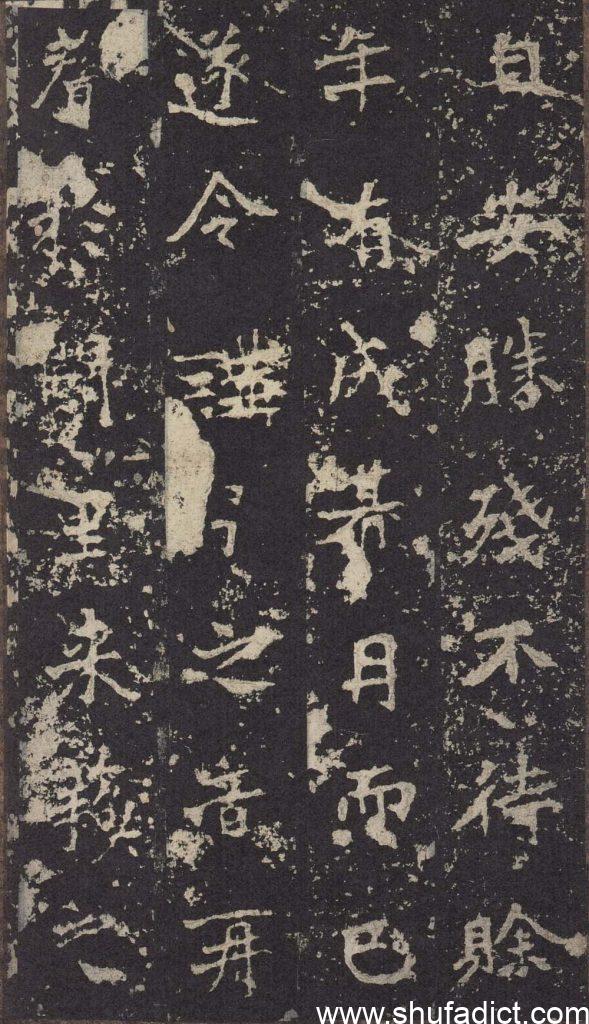 自安勝殘不待賒
年有成朞月而已
遂令講習之音再
於闕里来蘇之
www.shufadict.com